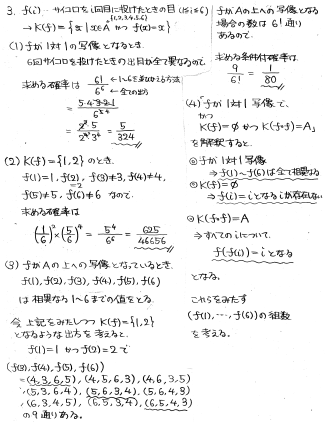 3. f(i)… サイコロを i回目に投げたときの目 (1≤i≤6)
→ K(f) = {x | x∈A かつ f(x)=x}
{1,2,3,4,5,6}
(1) fが1対1の写像となるとき
6回サイコロを投げたときの出目が全て異なるので
求める確率は 6!/6⁶ ← 1~6を並びかえる方法
← 全ての出方
= 5·4·3·2·1/6⁵
= 5/324
(2) K(f)={1,2} のとき.
f(1)=1, f(2)=2, f(3)≠3, f(4)≠4,
f(5)≠5, f(6)≠6 なので
求める確率は
(1/6)²×(5/6)⁴ = 5⁴/6⁶ = 625/46656
(3) fがAの上への写像となっているとき.
f(1), f(2), f(3), f(4), f(5), f(6)
は相異なる1~6までの値をとる.
今 上記をみたしつつ K(f)={1,2}
となるような出方を考えると.
f(1)=1 かつ f(2)=2 で
(f(3), f(4), f(5), f(6))
=(4,3,6,5), (4,5,6,3), (4,6,3,5)
,(5,3,6,4), (5,6,3,4), (5,6,4,3)
,(6,3,4,5), (6,5,3,4), (6,5,4,3)
の9通りある.
fがAの上への写像となる
場合の数は 6! 通り
あるので.
求める条件付確率は
9/6! = 1/80
(4)「fが1対1写像で、
かつ
K(f)=∅ かつ K(f∘f)=A」
を解釈すると.
◎ fが1対1写像
→ f(1)~f(6)は全て相異なる
◎ K(f)=∅
→ f(i)=i となる i が存在しない
◎ K(f∘f)=A
→ すべての i について.
f(f(i))=i となる
となる.
これらをみたす
(f(1),…,f(6))の組数
を考える.